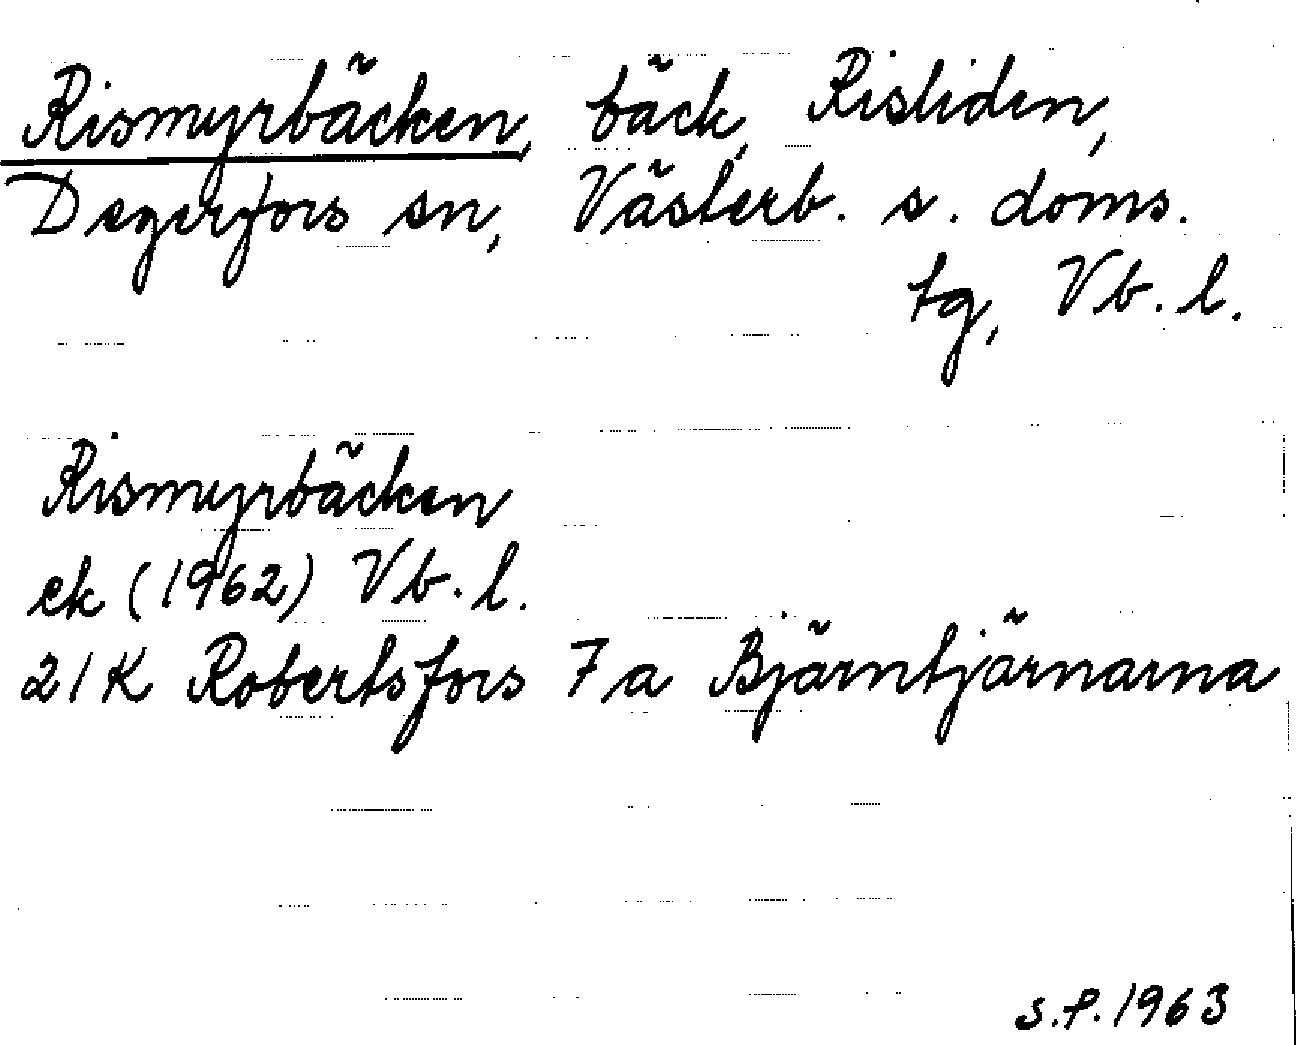 Rismyrbäcken, bäck, Risliden,
Degerfors sn, Västerb. s. doms.
tg, Vb. l.
Rismyrbäcken
ek (1962) Vb. l.
21K Robertsfors 7a Bjärntjärnarna
S.P. 1963